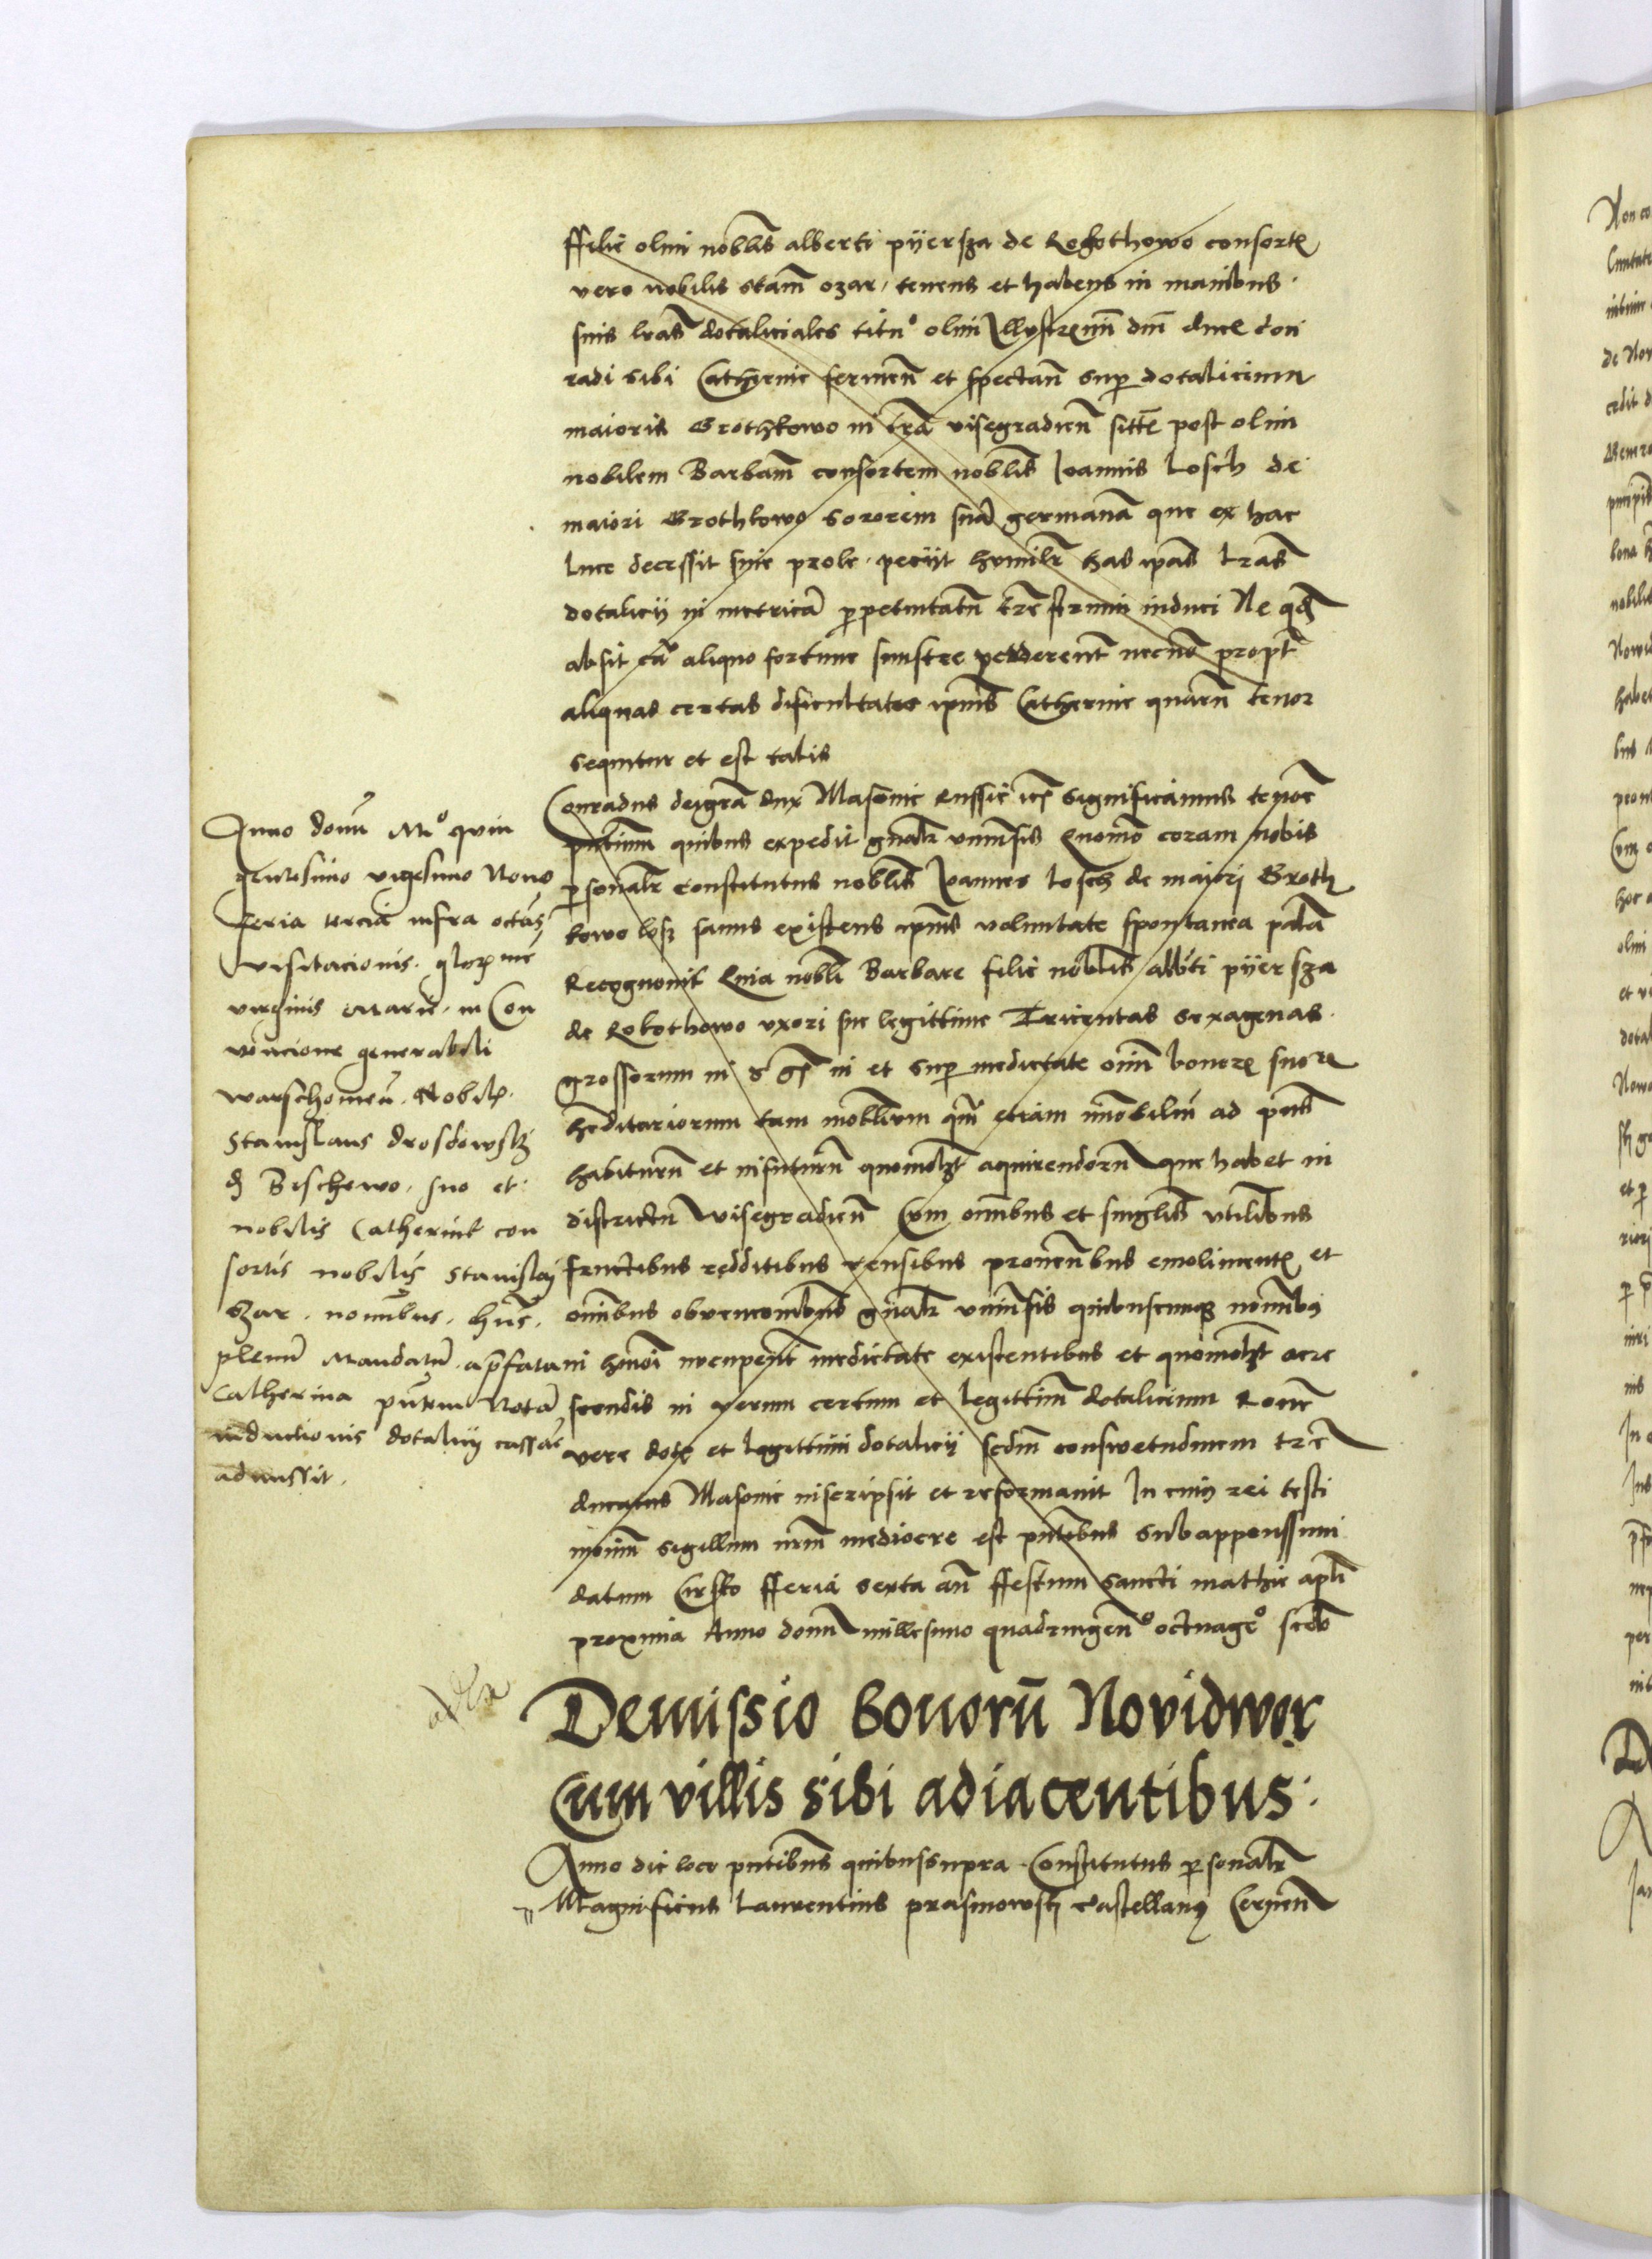 ffilie olim noblis alberti pyersza de Rokothowo consortis
vero nobilis stam ozar, tenens et habens in manibus
suis lras dotaliciales titu° olim Illustrimi dni ducis Con
radi sibi Catherine servien et spectan sup dotalicium
maioris Grothkowo in tra visegradien sitte post olim
nobilem Barbam consortem noblis Joannis Losch de
maiori Grothkowo sororem sua germana que ex hac
luce decessit sine prole. peciit humilr has ipas lras
dotalicij in metrica ppetuitatu tre induci Ne qd
absit ca aliquo fortune sinistre perderent necno propt
aliquas certas dificultates ipius Catherine quaru tenor
sequitur et est talis
Conradus dei gra dux Masovie Russie etc significamus tenore
pntium quibus expedit gnalr universis Quomo coram nobis
psonalr constitutus noblis Joannes Losch de maiori Groth
kowo sanus existens ipius voluntate spontanea pala
Recognovit Quia nobli Barbare filie noblis albti pyersza
de Rokothowo uxori sue legittime Tricentas sexagenas
grossorum in et sup medietate oim bonorum suorum
heditariorum tam mobilium qm etiam imobiliu ad pns
habituru et infuturu quomolzt aquirendoru que habet in
districtu Wisegradien Cum omibus et singlis utilibus
fructibus redditibus censibus provenbus emolimentis et
omibus obvencionibus gnalr universis quibuscunque nomibus
in hmoi medietate existentibus et quomolzt acre
scendis in verum certum et legittim dotalicium Roe
vere dotis et legittimi dotalicij scdm consuetudinem tre
ducatus Masovie inscripsit et reformavit In cuius rei testi
monium sigillum nrm mediocre est pntibus subappenssum
datum Cirsko fferia sexta an ffestum sancti mathie apli
proxima Anno domi millesimo quadringen° octuage° scdo
Anno domi M° quin
gentesimo vigesimo Nono
feria tercia infra octas
visitacionis gloriose
virginis Marie in Con
vencione generabili
warschovien. Nobilis
Stanislaus drosdowski
de Bischewo. suo et
nobilis Catherine con
sortis nobilis Stanislaj
Ozar. nomibus. hns.
plenu Mandatu. a pfata
Catherina pntem Nota
inductionis dotalicij cassare
admissit.
Demissio bonoru Novidwor
Cum villis sibi adiacentibus:
Anno die loco pntibus quibus supra Constitutus psonalr
Magnificus Laurentius prasmowski castellanus Cernen